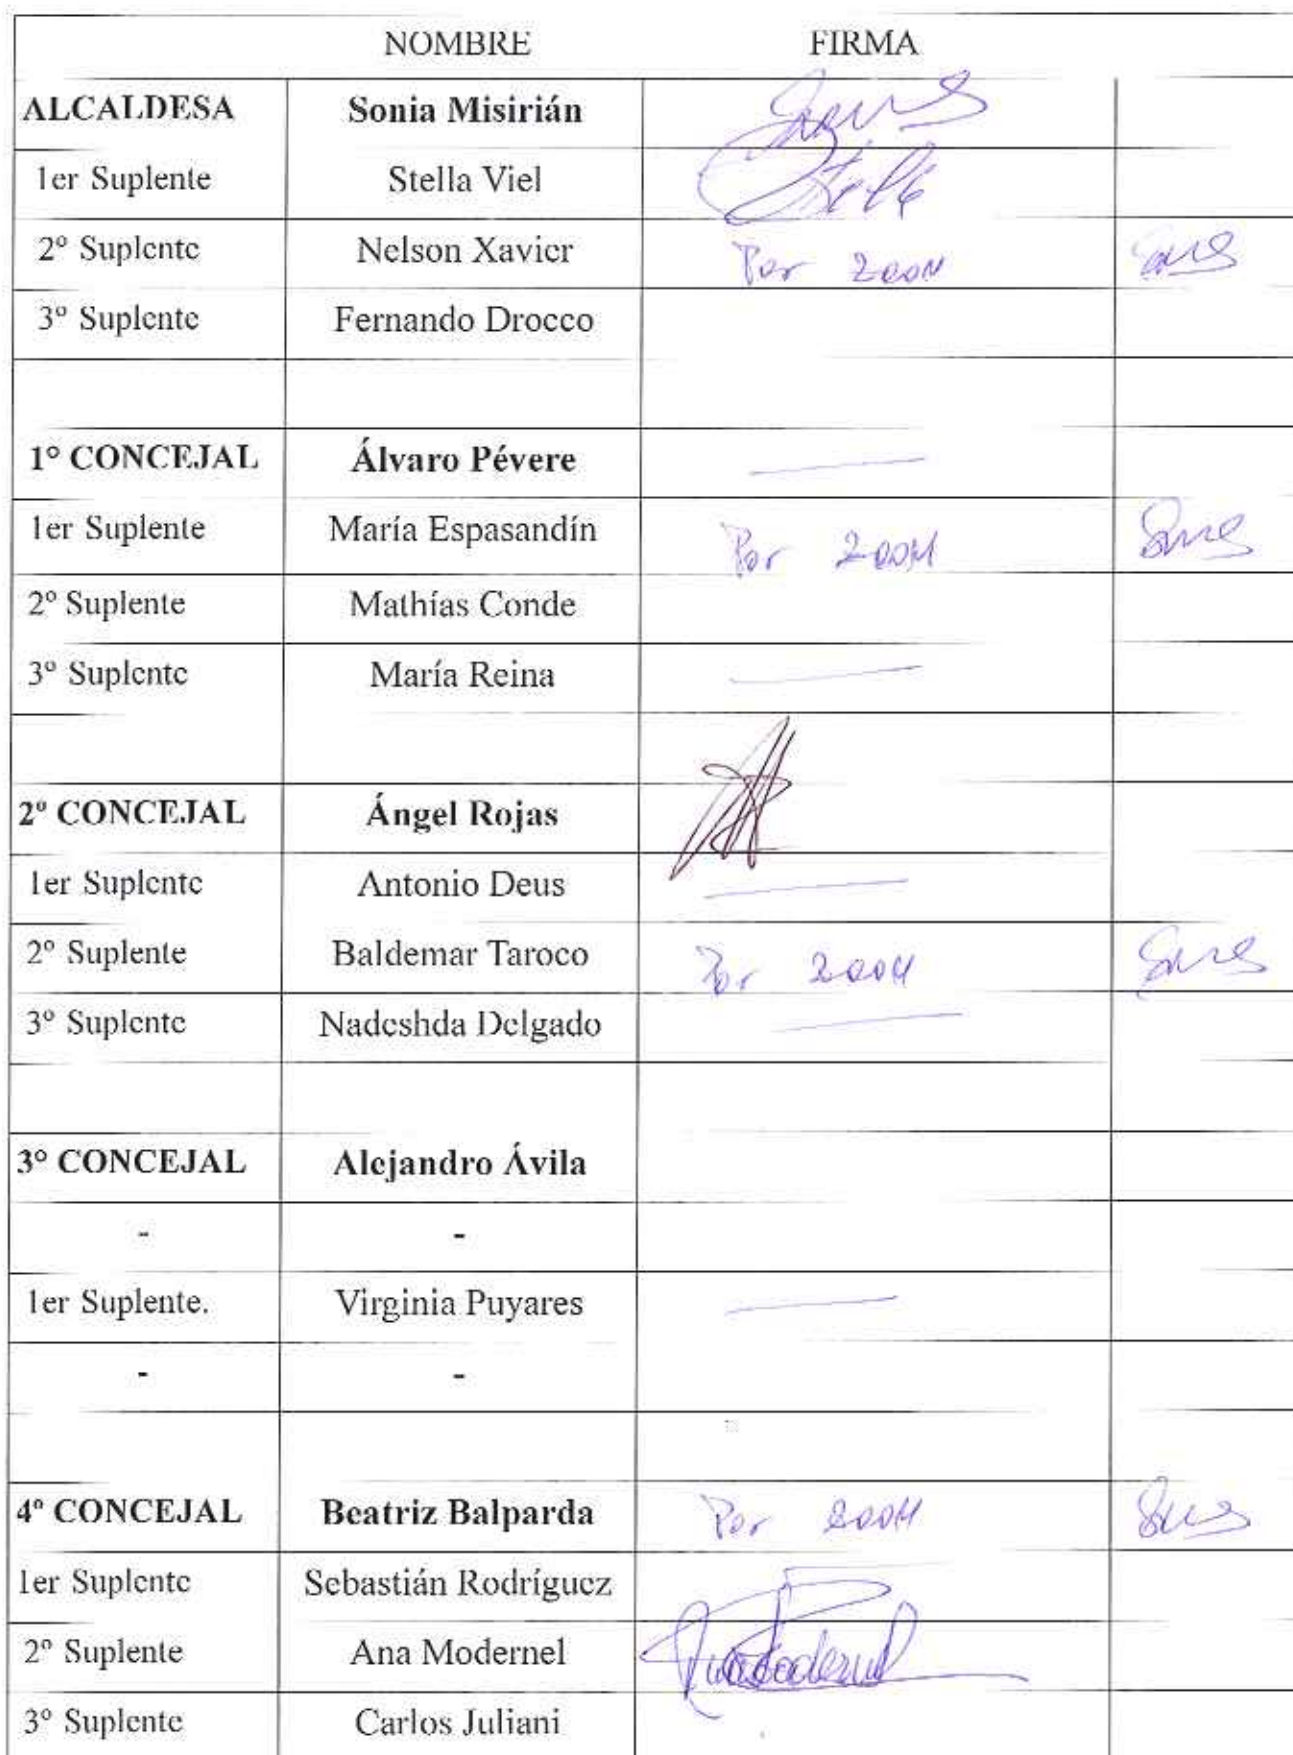 NOMBRE FIRMA
ALCALDESA Sonia Misirián
1er Suplente Stella Viel
2º Suplente Nelson Xavier Por Zoom
3º Suplente Fernando Drocco
1° CONCEJAL Álvaro Pévere
1er Suplente María Espasandín Por Zoom
2º Suplente Mathías Conde
3º Suplente María Reina
2º CONCEJAL Ángel Rojas
1er Suplente Antonio Deus
2º Suplente Baldemar Taroco Por Zoom
3º Suplente Nadeshda Delgado
3° CONCEJAL Alejandro Ávila
- -
1er Suplente. Virginia Puyares
- -
4º CONCEJAL Beatriz Balparda Por Zoom
1er Suplente Sebastián Rodríguez
2º Suplente Ana Modernel
3º Suplente Carlos Juliani